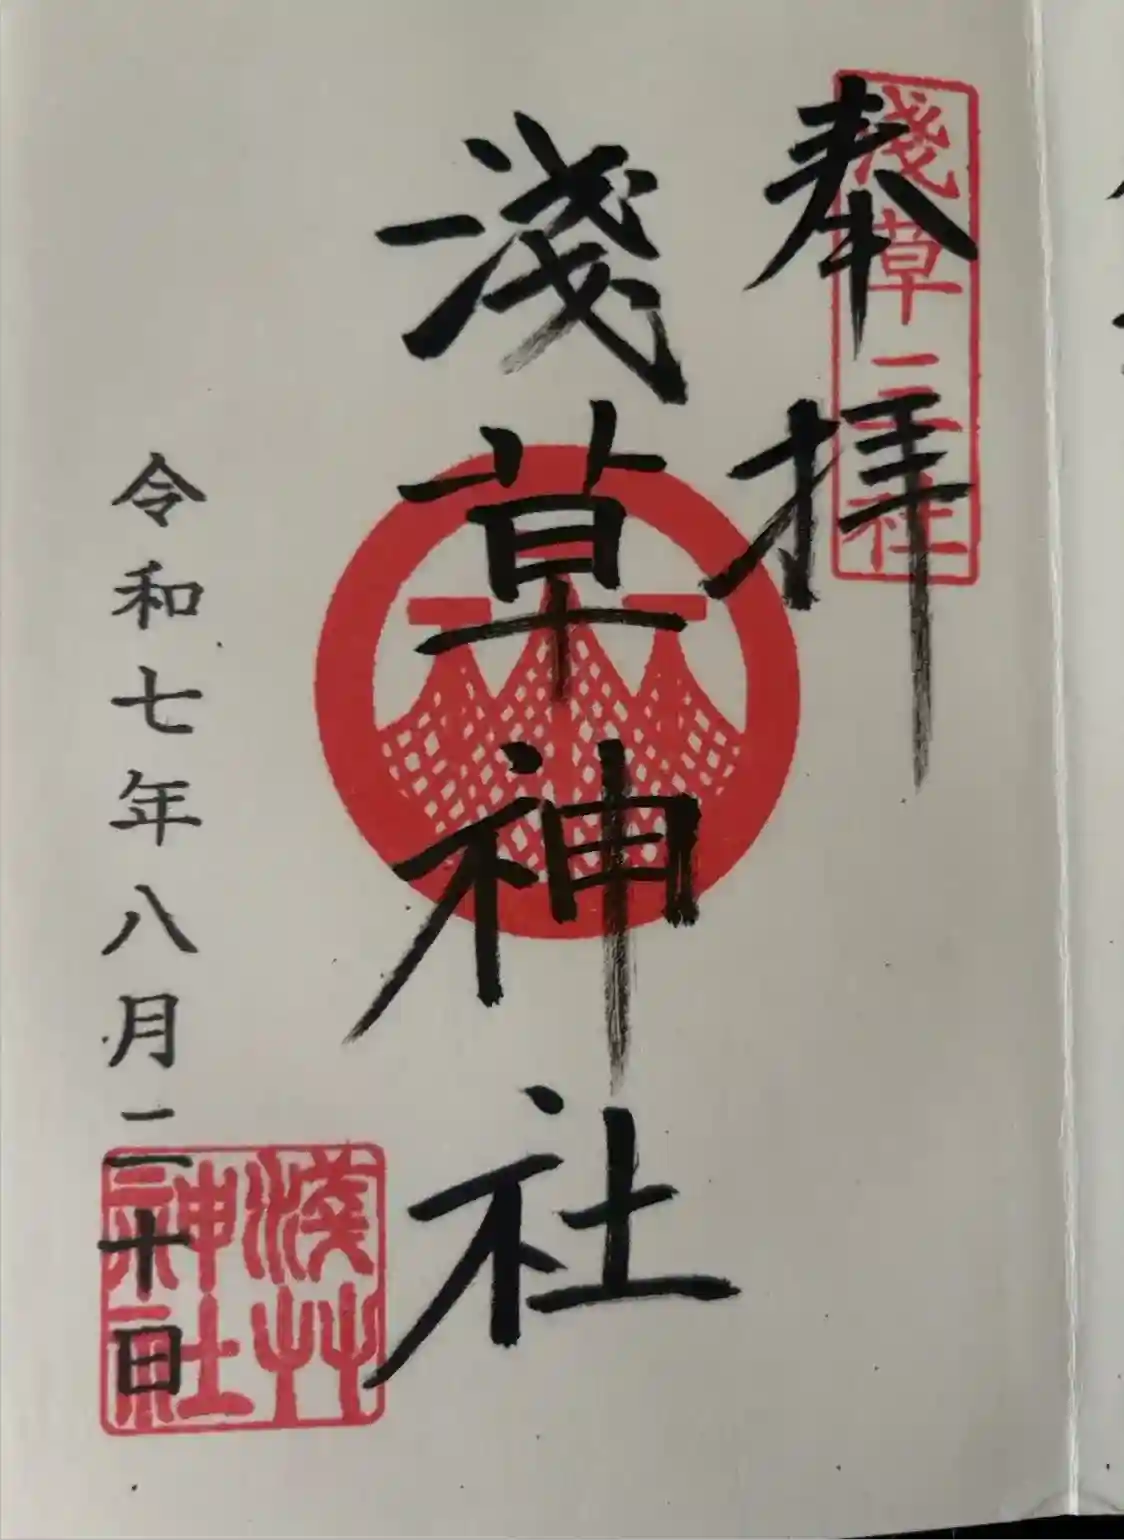 奉拝
淺草三社
淺草神社
令和七年八月二十日
淺艸
神社